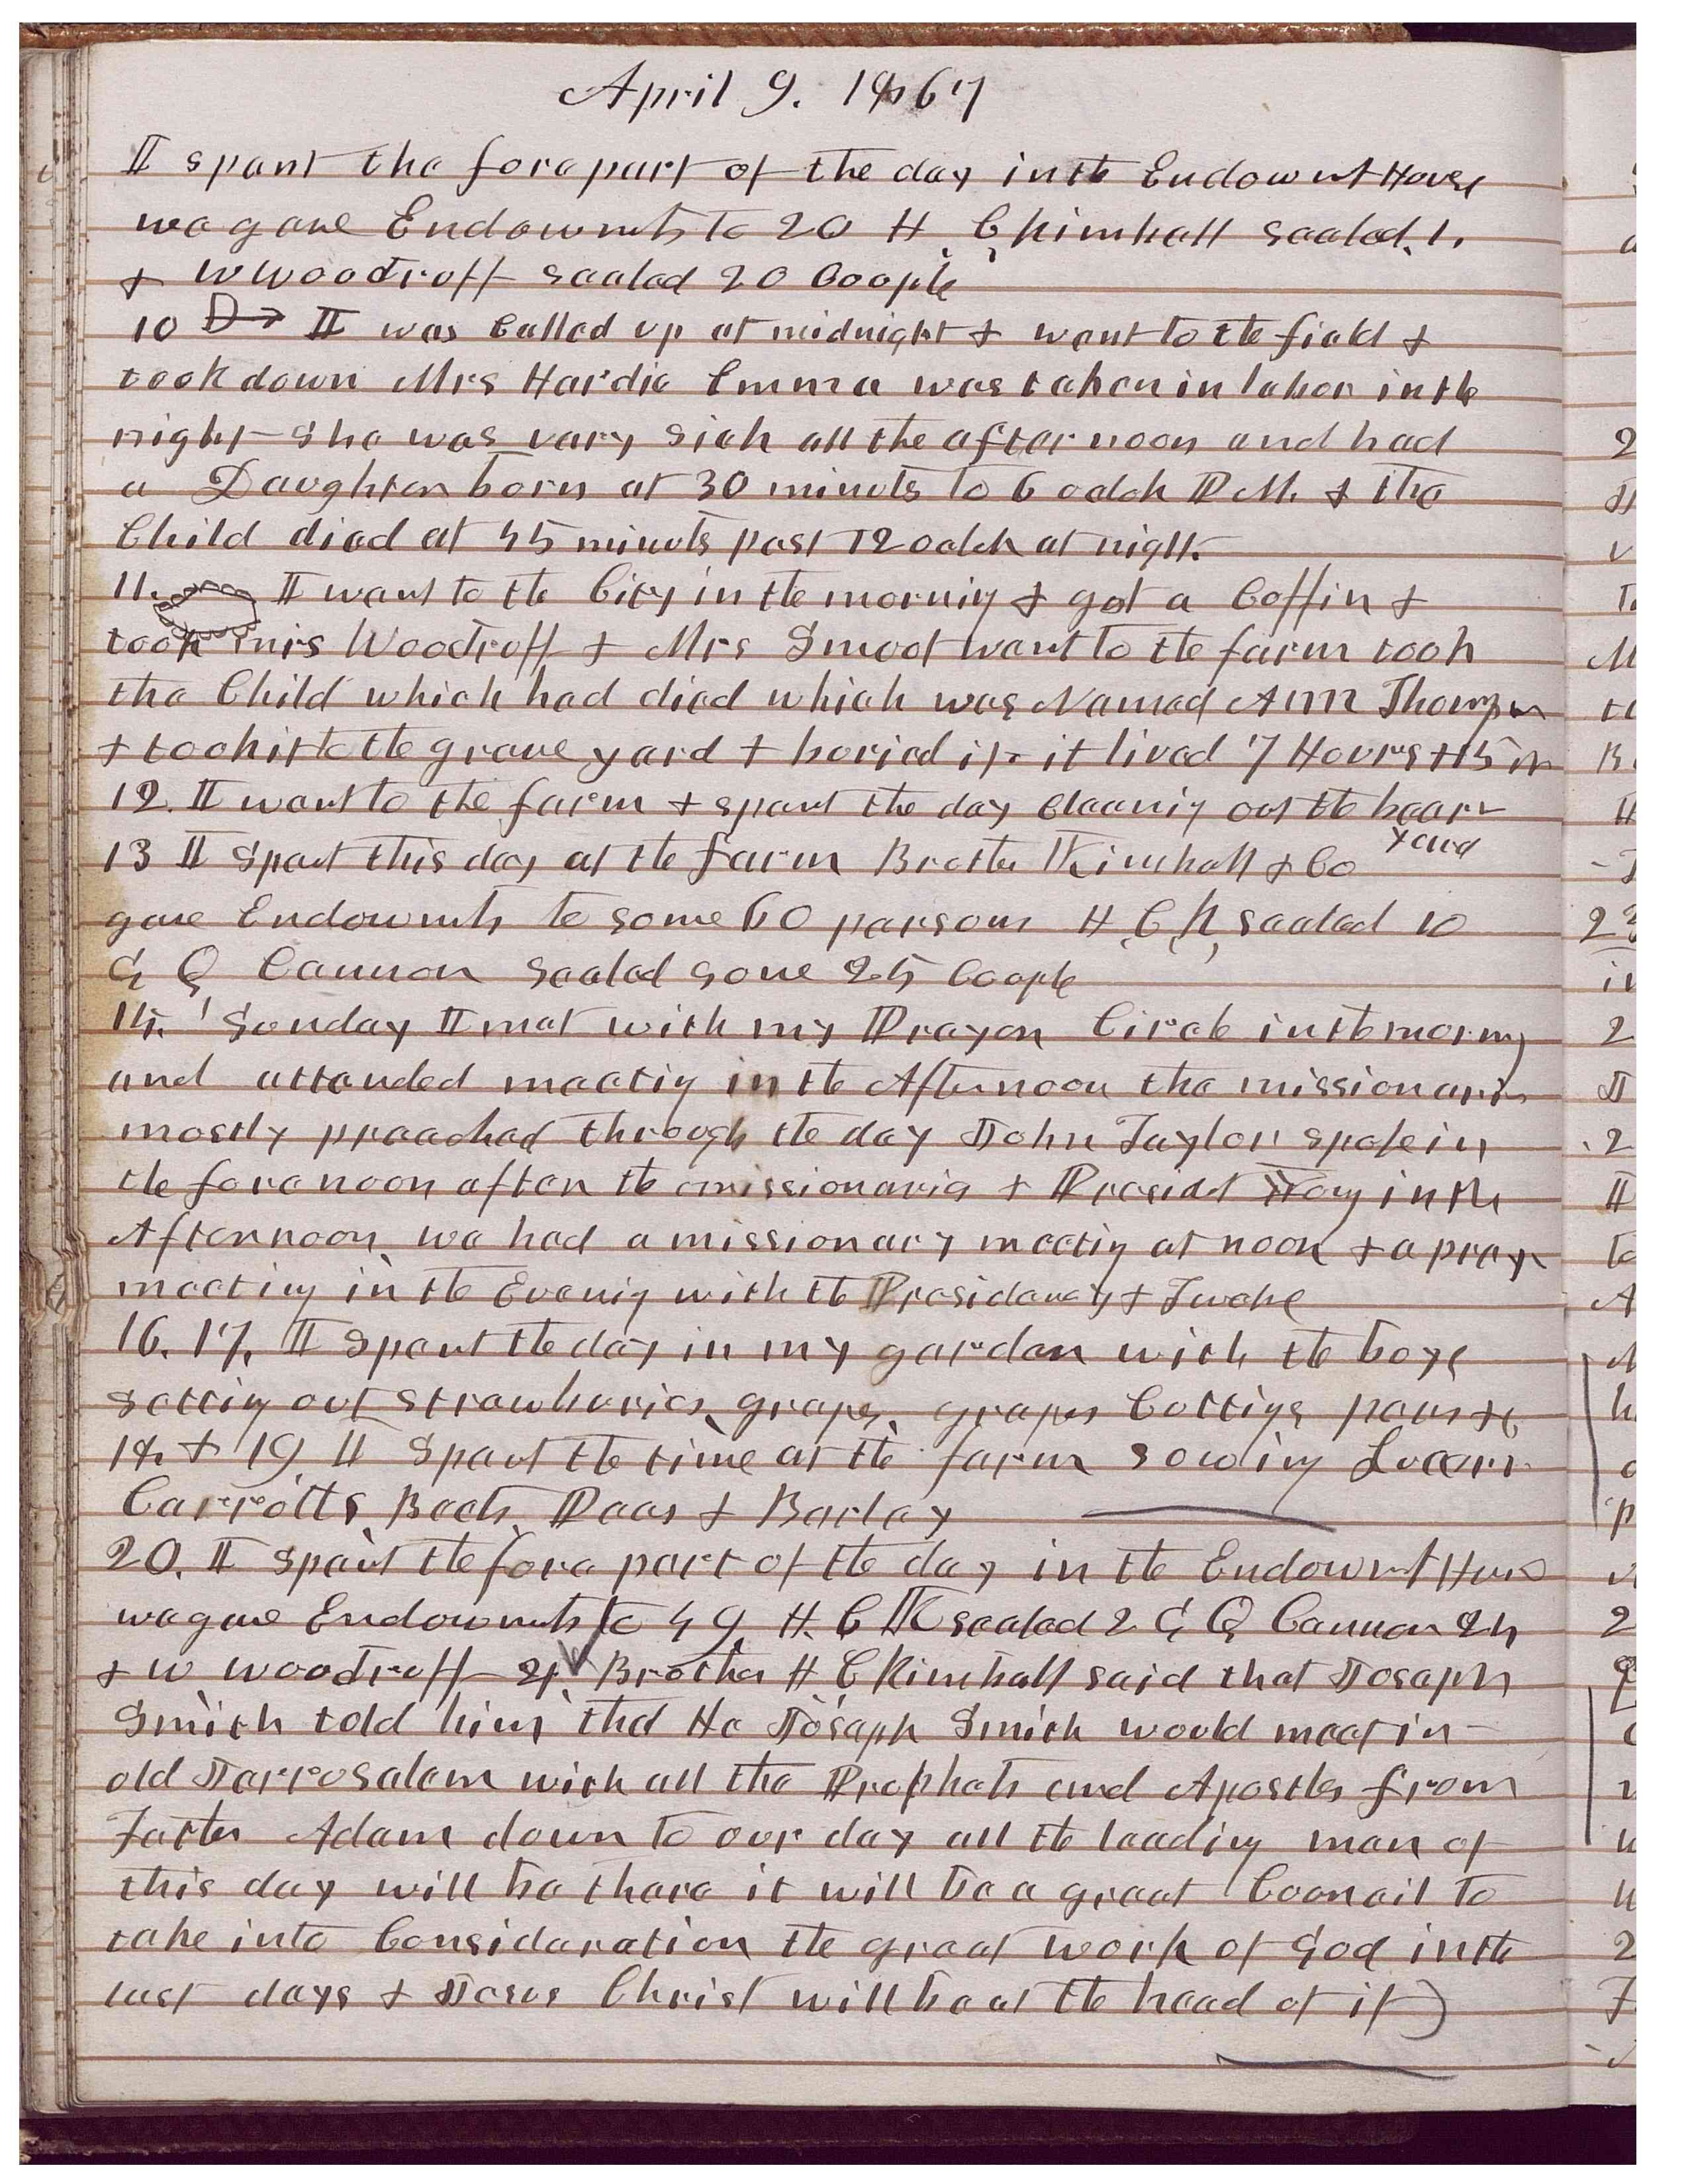 April 9. 1867
I spent the fore part of the day in the Endowmt House
we gave Endowmts to 20 H. C Kimball sealed 1.
& W Woodruff sealed 20 Couple
10 I was Called up at midnight & went to the field &
took down Mrs Hardie Emma was taken in labor in the
night she was very sick all the afternoon and had
a Daughter born at 30 minuts to 6 oclok P M. & the
Child died at 45 minuts past 12 oclok at night.
11. I went to the City in the morning & got a Coffin &
took Mrs Woodruff & Mrs Smoot went to the farm took
the Child which had died which was Named Ann Thompsn
& took it to the grave yard & buried it. it lived 7 Hours & 15 m
12. I went to the farm & spent the day Cleaning out the bearn
yard
13 I Spent this day at the farm Brother Kimball & Co
gave Endowmts to some 60 persons H. C. K, sealed 10
G Q Cannon sealed some 25 Couple
14. Sunday I met with my Prayer Circle in the morning
and attended meeting in the Afternoon the missionaries
mostly preached through the day John Taylor spoke in
the forenoon after the missionaries & Presidet Young in the
Afternoon we had a missionary meeting at noon & a prayr
meeting in the Evening with the Presidency & Twelve
16. 17. I spent the day in my garden with the boys
setting out strawburies, grapes, grapes Cuttings pears &c
18. & 19 I Spent the time at the farm sowing Lucern
Carrotts Beets, Peas & Barley
20. I spent the fore part of the day in the Endowmt House
we gave Endowmts to 49. H. C K sealed 2 G Q Cannon 24
& W Woodruff 21. Brother H C Kimball said that Joseph
Smith told him that He Joseph Smith would meet in
old Jerrusalem with all the Prophets and Apostles from
Father Adam down to our day all the leading men of
this day will be there it will be a great Councail to
take into Consideration the great work of God in the
last days & Jesus Christ will be at the head of it)